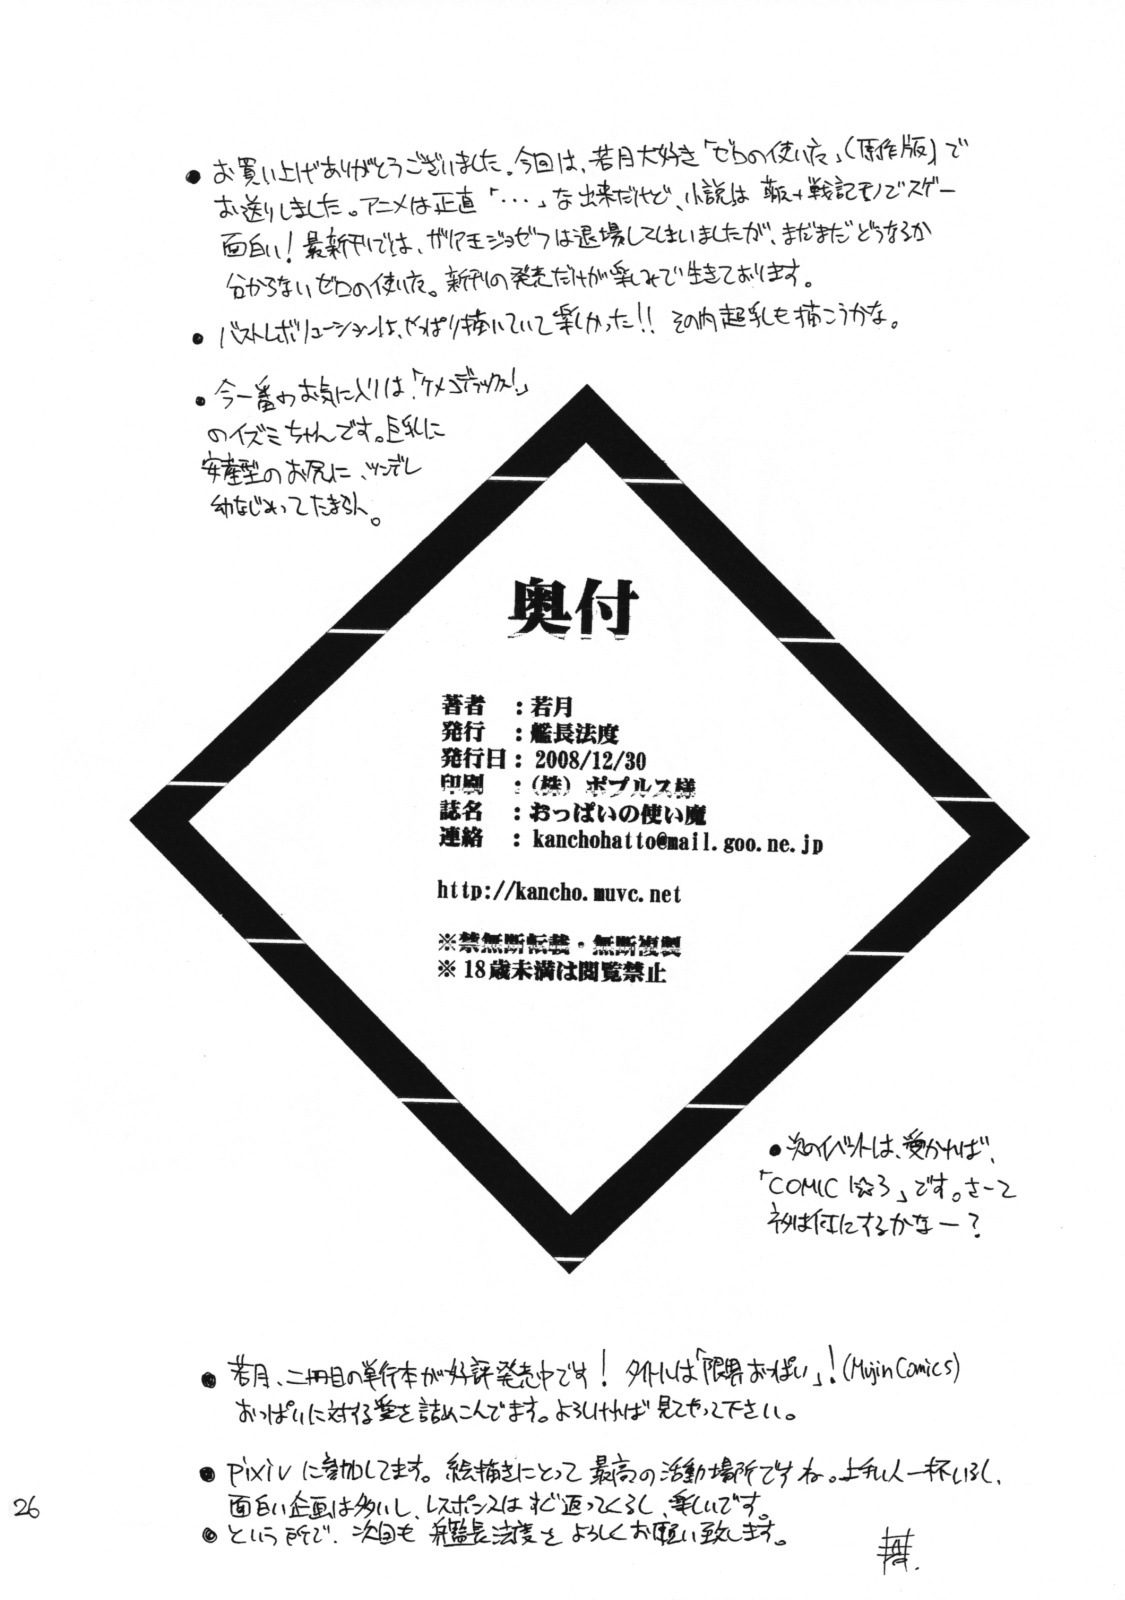 ●お買い上げありがとうございました。今回は、若月大好き「ゼロの使い方」(原作版)で
お送りしました。アニメは正直「・・・」な出来だけど、小説は 萌+戦記モノでスゲー
面白い!最新刊では、ガリア王ジョゼフは退場してしまいましたが、まだまだどうなるか
分からないゼロの使い方。新刊の発売だけが楽しみで生きております。
●バストレボリューションは、やっぱり描いていて楽しかった!! その内超乳も描こうかな。
●今一番のお気に入りは「ケメコデラックス!」
のイズミちゃんです。巨乳に
安産型のお尻に、ツンデレ
幼なじみってたまらん。
奥付
著者 :若月
発行 :艦長法度
発行日: 2008/12/30
印刷 :(株)ポプルス様
誌名 :おっぱいの使い魔
連絡 : kanchohatto@mail.goo.ne.jp
http://kancho.muvc.net
※禁無断転載・無断複製
※18歳未満は閲覧禁止
●次のイベントは、受かれば、
「COMIC1☆3」です。さーて
ネタは何にするかなー?
●若月、二冊目の単行本が好評発売中です! タイトルは「限界おっぱい」!(Mujin Comics)
おっぱいに対する愛を詰めこんでます。よろしければ見てやって下さい。
●pixivに参加してます。絵描きにとって最高の活動場所ですね。上手い人一杯いるし、
面白い企画は多いし、レスポンスはすぐ返ってくるし、楽しいです。
●という所で、次回も艦長法度をよろしくお願い致します。
26